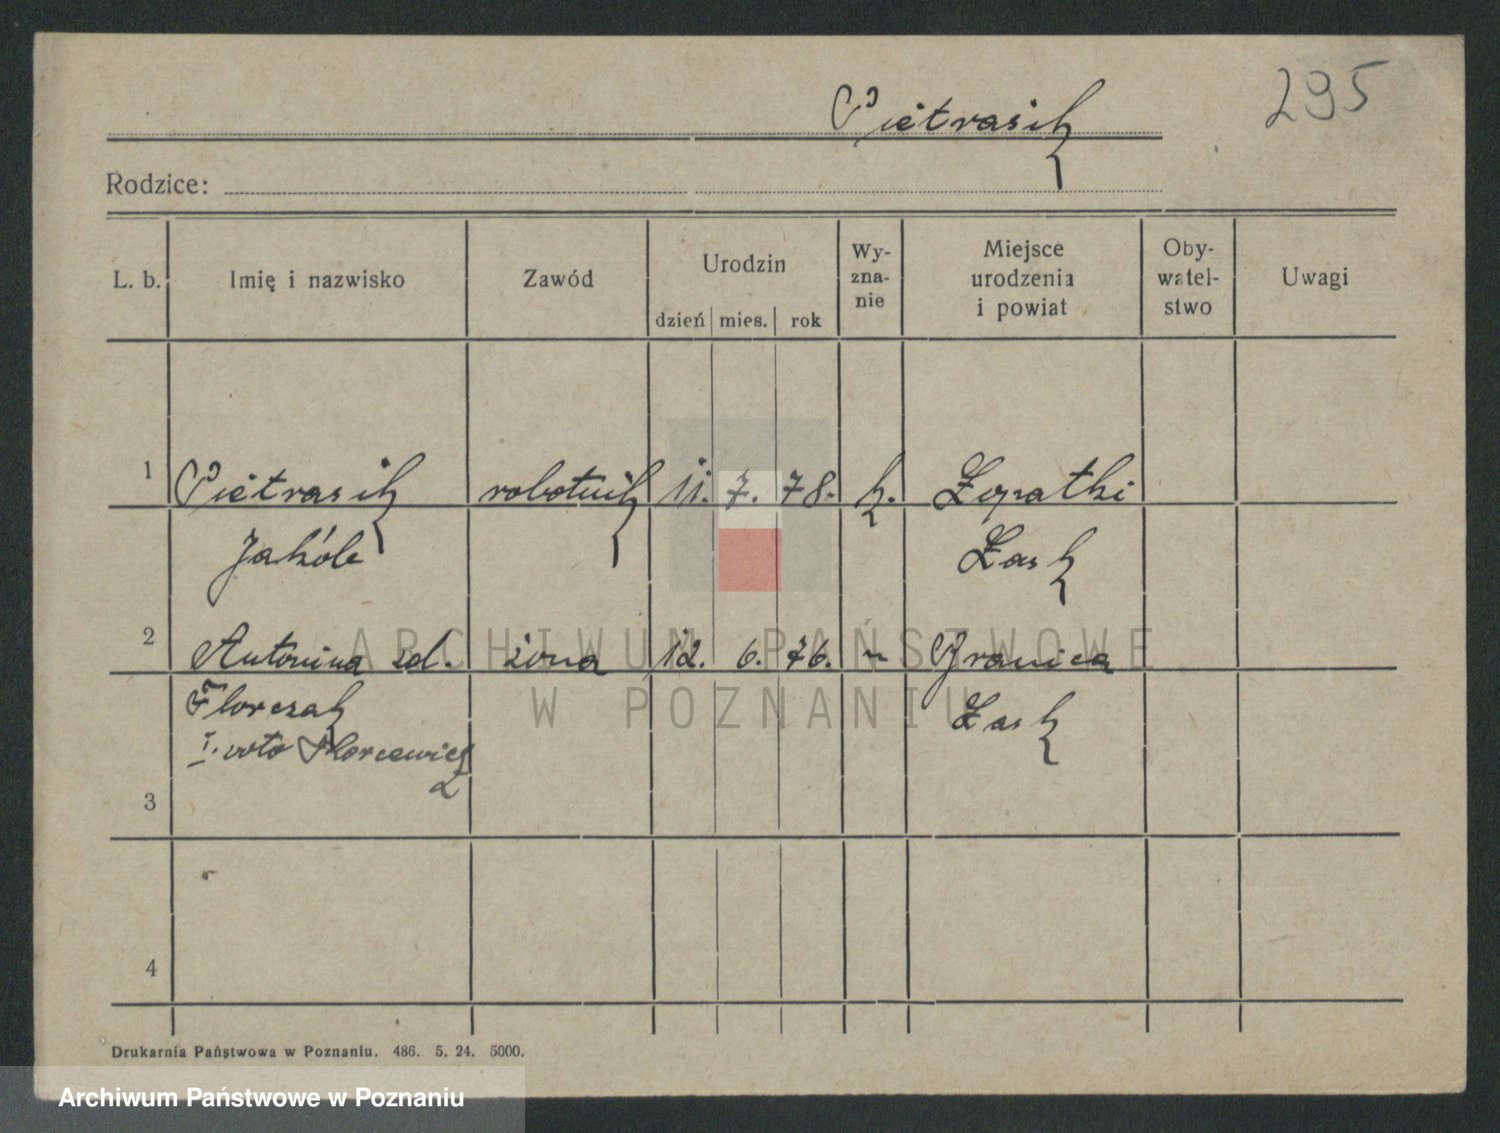 295
Pietrasik
Rodzice:
L. b. Imię i nazwisko Zawód Urodzin dzień mies. rok Wy-zna-nie Miejsce urodzenia i powiat Oby-watel-stwo Uwagi
1 Pietrasik robotnik 11. 7. 78. k. Łopatki
Jakób Łask
2 Antonina zd. żona 12. 6. 76. " Granica
Florczak Łask
I. voto
3
4
Drukarnia Państwowa w Poznaniu. 486. 5. 24. 5000.
ARCHIWUM PAŃSTWOWE
W POZNANIU
Archiwum Państwowe w Poznaniu